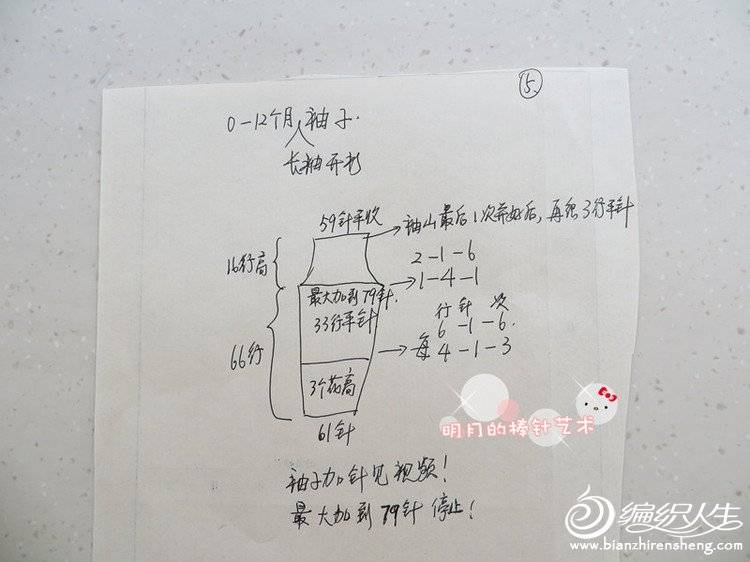 ⑤
0-12个月袖子.
长袖开衫
59针平收
袖山最后1次弄好后,再织3行平针
2-1-6
1-4-1
16行高
最大加到79针.
33行平针
行 针 次
6-1-6.
每4-1-3
66行
3个花高
61针
明月的棒针艺术
袖子加针见视频!
最大加到79针停止!
编织人生
www.bianzhirensheng.com